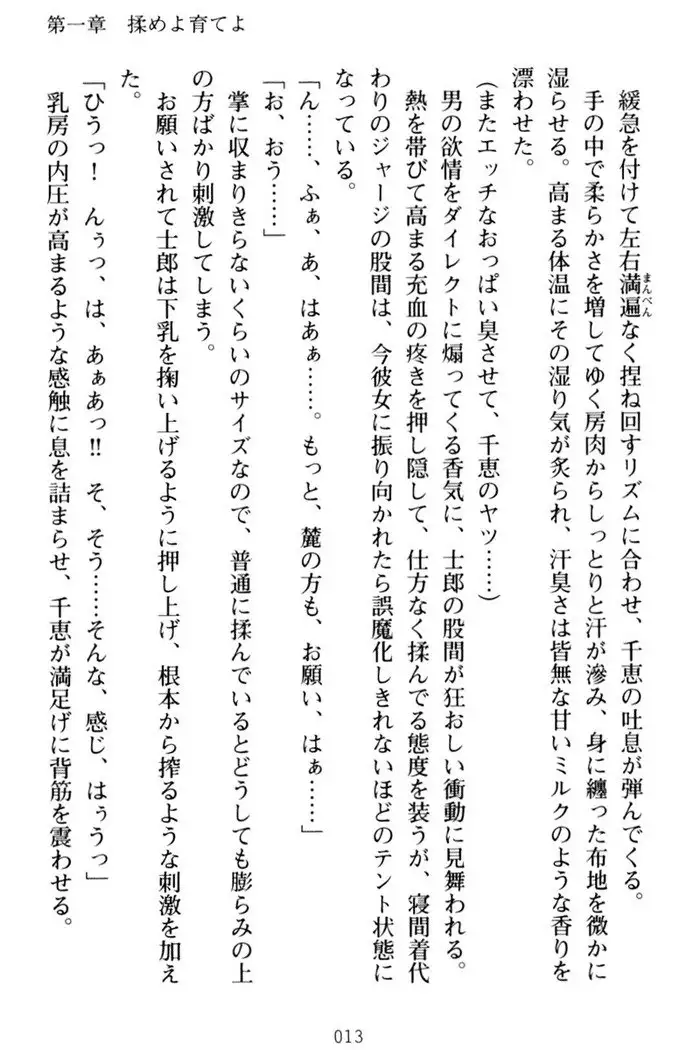 第一章　揉めよ育てよ
緩急を付けて左右満遍なく捏ね回すリズムに合わせ、千恵の吐息が弾んでくる。
まんべん
手の中で柔らかさを増してゆく房肉からしっとりと汗が滲み、身に纏った布地を微かに
湿らせる。高まる体温にその湿り気が炙られ、汗臭さは皆無な甘いミルクのような香りを
漂わせた。
(またエッチなおっぱい臭させて、千恵のヤツ……)
男の欲情をダイレクトに煽ってくる香気に、士郎の股間が狂おしい衝動に見舞われる。
熱を帯びて高まる充血の疼きを押し隠して、仕方なく揉んでる態度を装うが、寝間着代
わりのジャージの股間は、今彼女に振り向かれたら誤魔化しきれないほどのテント状態に
なっている。
「ん……、ふぁ、あ、はあぁ……。もっと、麓の方も、お願い、はぁ……」
「お、おう……」
掌に収まりきらないくらいのサイズなので、普通に揉んでいるとどうしても膨らみの上
の方ばかり刺激してしまう。
お願いされて士郎は下乳を掬い上げるように押し上げ、根本から搾るような刺激を加え
た。
「ひうっ！　んぅっ、は、あぁあっ!!　そ、そう……そんな、感じ、はぅうっ」
乳房の内圧が高まるような感触に息を詰まらせ、千恵が満足げに背筋を震わせる。
013